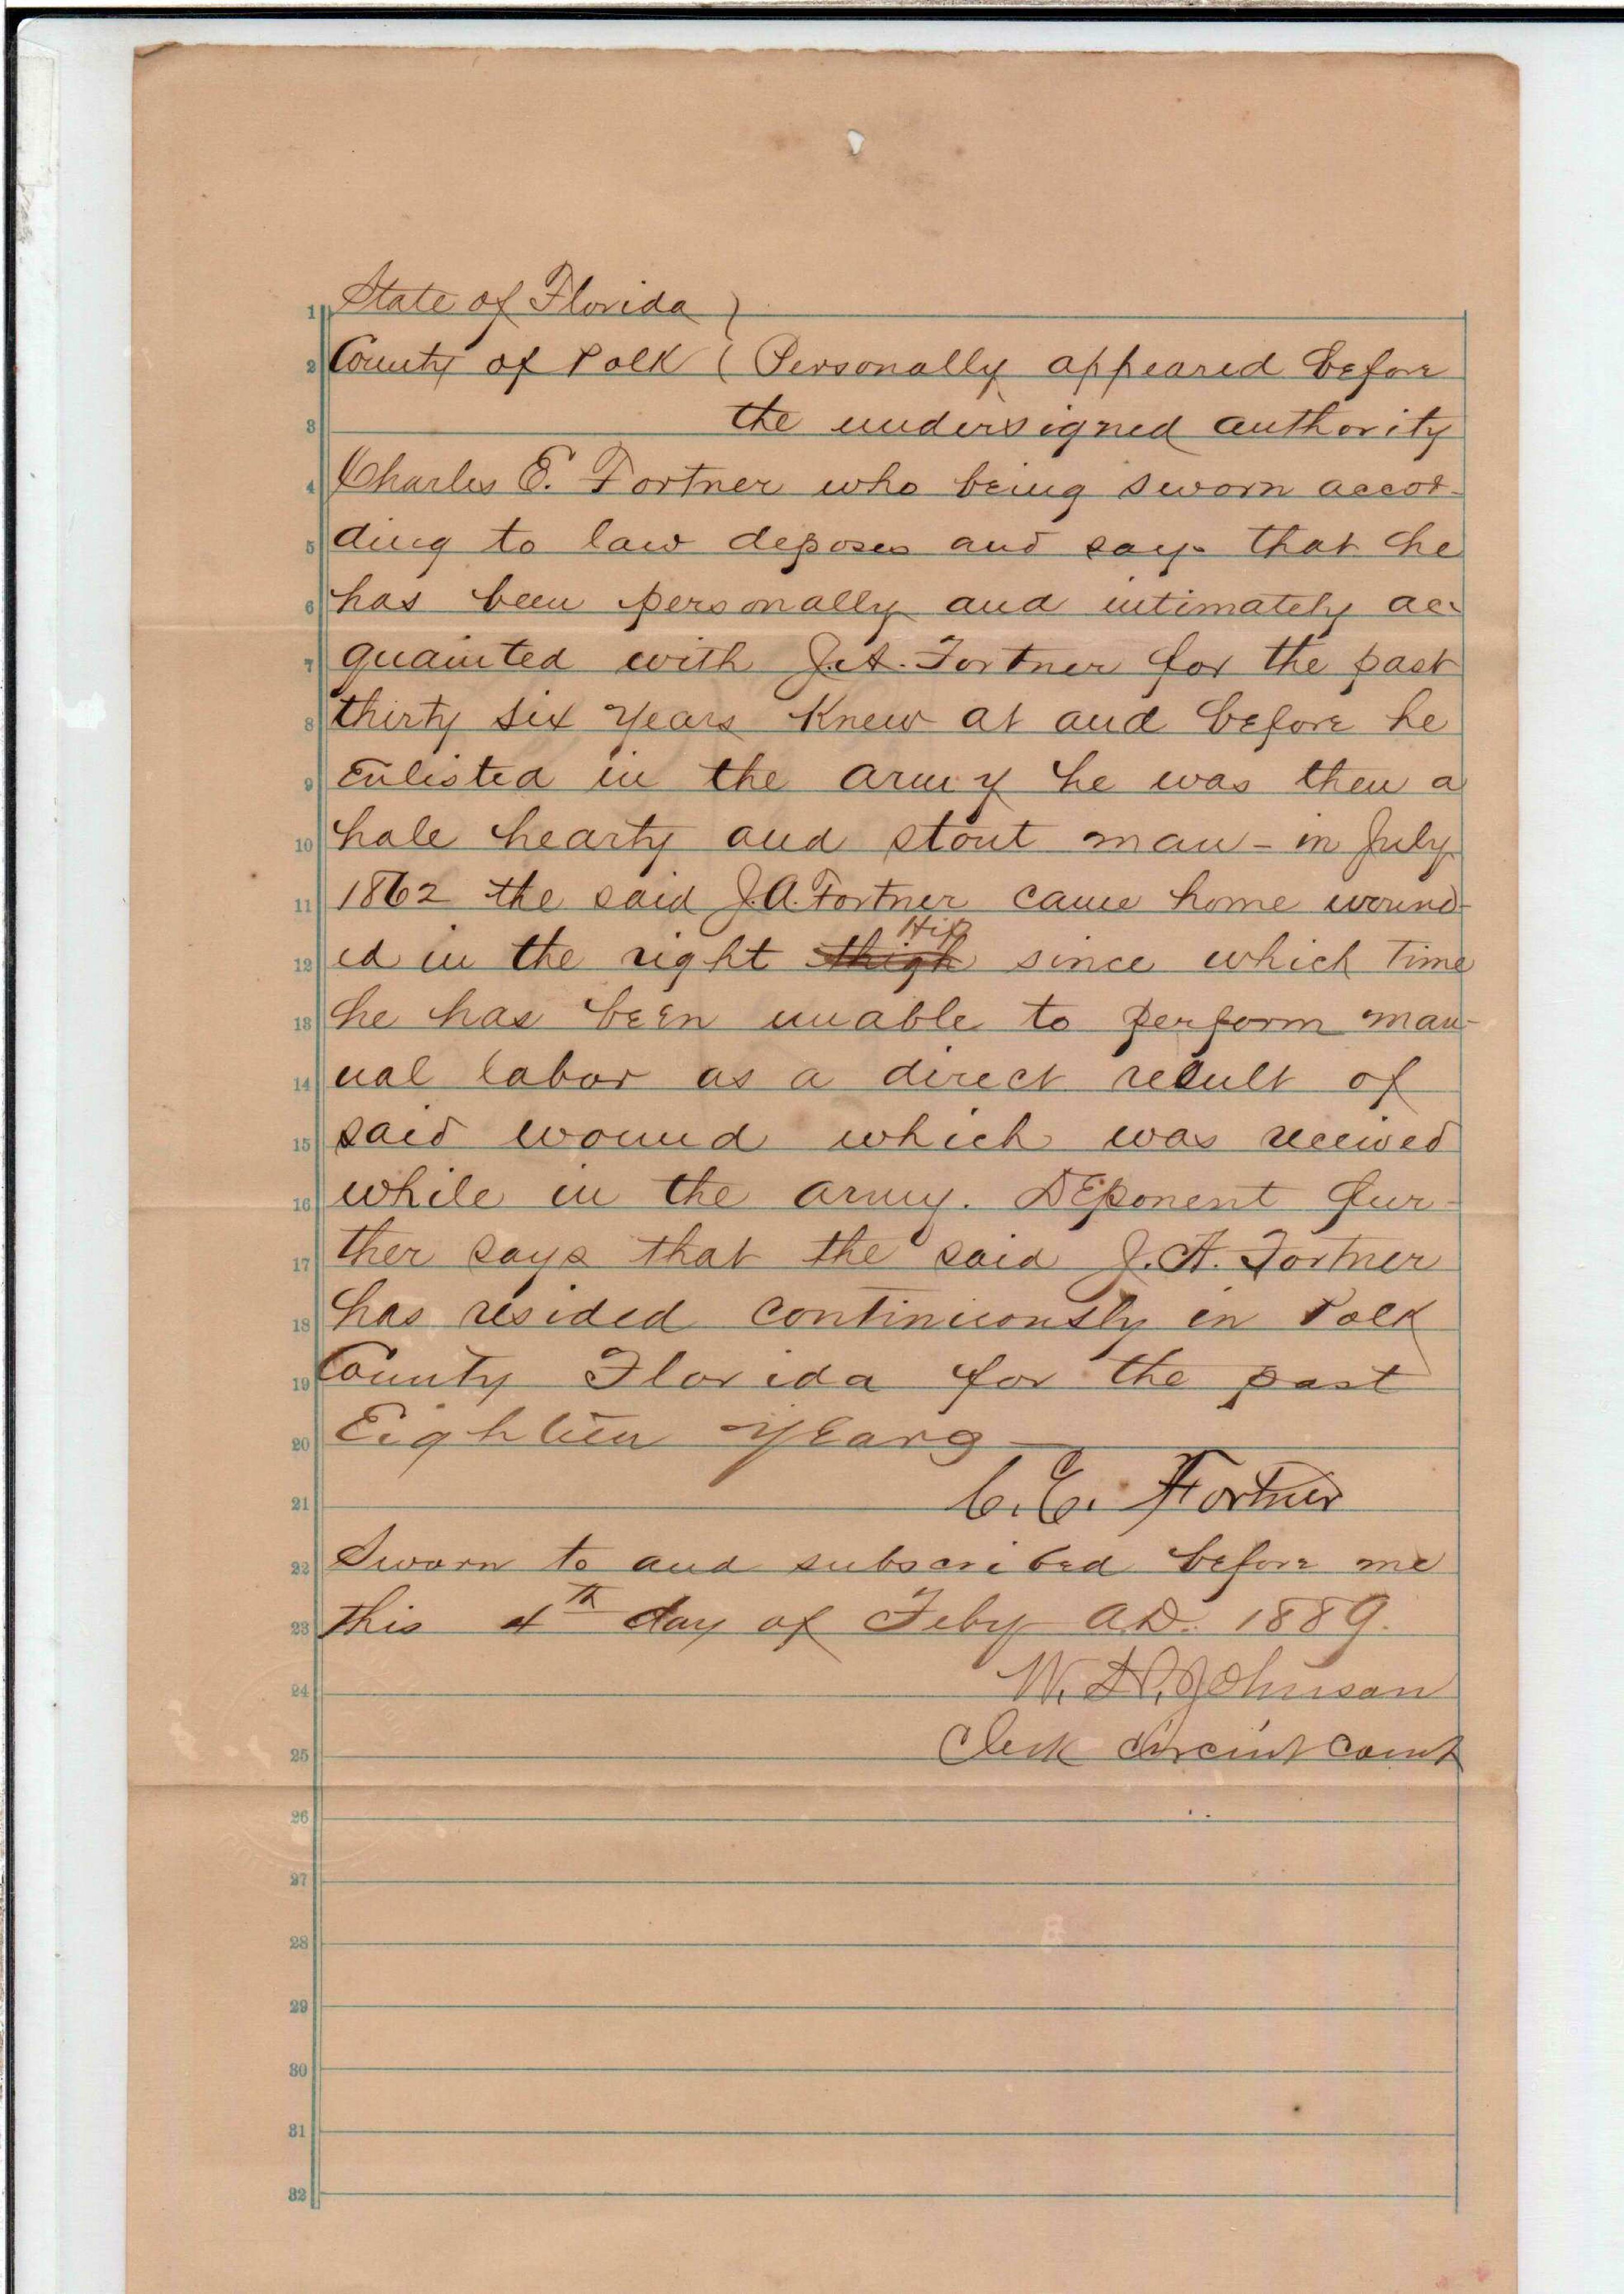 1 State of Florida }
2 County of Polk { Personally appeared before
3 the undersigned authority
4 Charles E. Fortner who being sworn accor-
5 ding to law deposes and says that he
6 has been personally and intimately ac-
7 quainted with J.A. Fortner for the past
8 thirty six years Knew at and before he
9 Enlisted in the army he was then a
10 hale hearty and stout man - in July
11 1862 the said J.A. Fortner came home wound-
Hip
12 ed in the right thigh since which time
13 he has been unable to perform man-
14 ual labor as a direct result of
15 said wound which was received
16 while in the army. Deponent fur-
17 ther says that the said J.A. Fortner
18 has resided continuously in Polk
19 County Florida for the past
20 Eighteen years
21 C.E. Fortner
22 Sworn to and subscribed before me
23 this 4th day of Feby A.D. 1889.
24 W. Johnson
25 Clerk Circuit Court
26
27
28
29
30
31
32